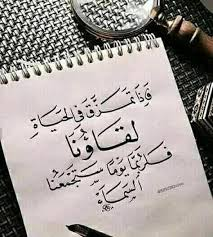 وَإِذَا تَمَزَّقَ فِي الحَيَاةِ
لِقَاؤُنَا
فَلَرُبَّمَا يَوْمًا سَتَجْمَعُنَا
السَّمَاءُ